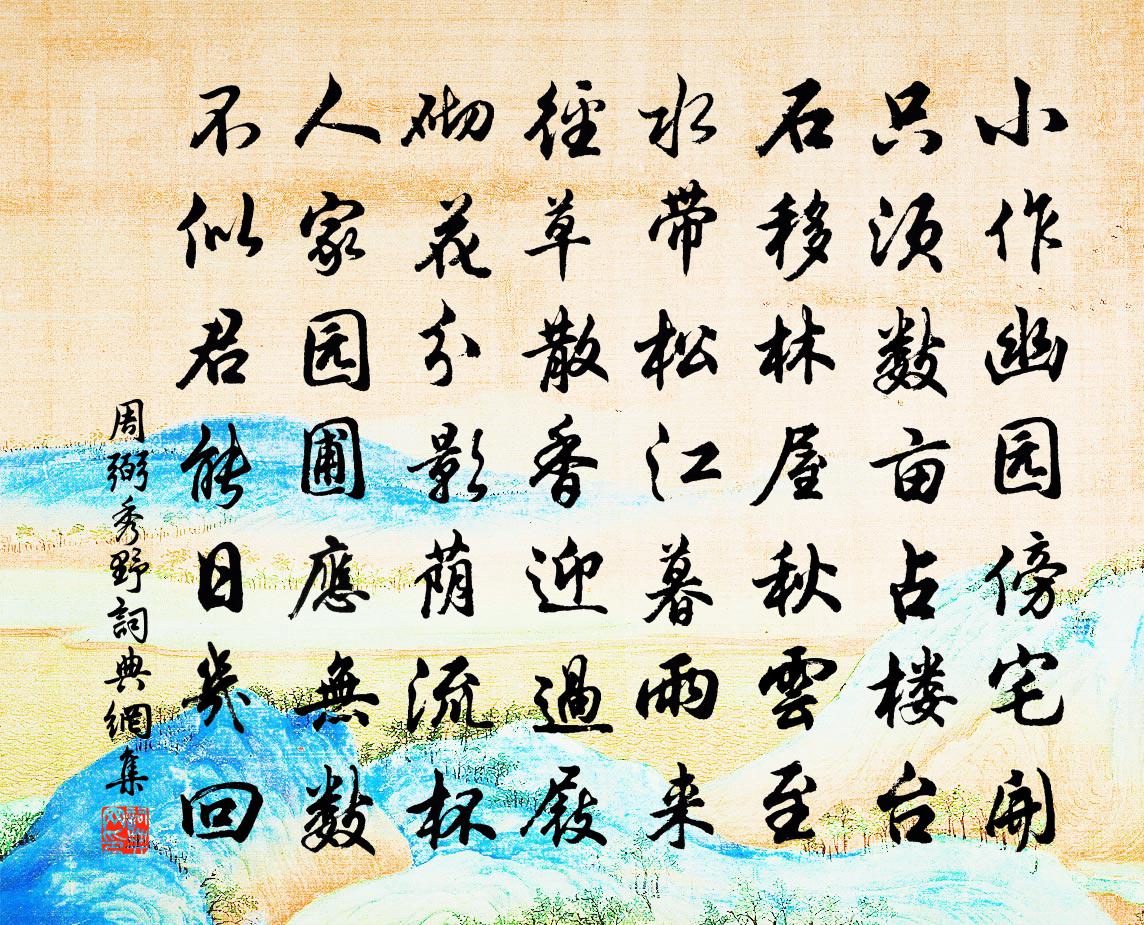 小作幽园傍宅开
只须数亩占楼台
石移林屋秋雲至
水带松江暮雨来
徑草散香迎過屐
砌花分影荫流杯
人家园圃應無數
不似君能日幾回
周弼秀野詞典網集